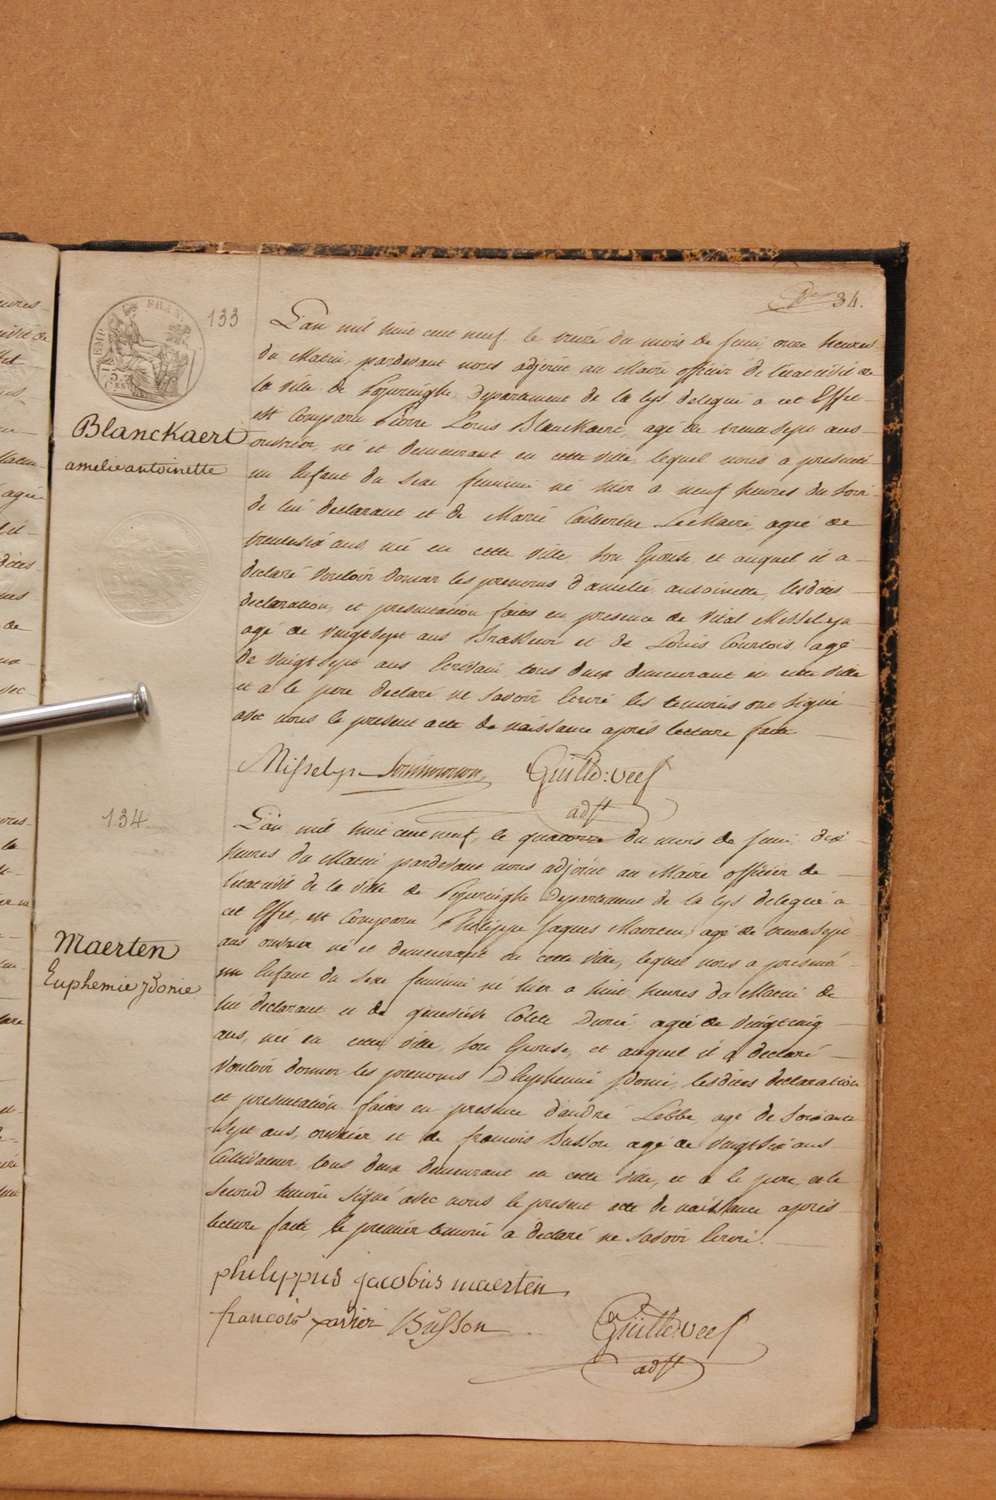 34.
133
Blanckaert
amelie antoinette
L'an mil huit cent neuf le treize du mois de Juin onze heures
du Matin, pardevant nous adjoint au Maire officier de l'état civil de
la ville de Poperinghe Departement de la Lys delegué a cet Effet
est Comparu Pierre Louis Blanckaert, agé de trente sept ans
ouvrier, né et demeurant en cette ville, lequel nous a presenté
un Enfant du Sexe feminin né hier a neuf heures du Soir
de lui declarant et de Marie Catherine LeMaire agée de
trentesix ans, née en cette ville, son Epouse et auquel il a
declaré vouloir donner les prenoms d'amelie antoinette, lesdites
declaration et presentation faites en presence de Vital Messelyn
agé de vingtsept ans Brasseur et de Louis Courtois agé
de vingt sept ans Ecrivain, tous deux demeurant en cette ville
et a le pere declaré ne Savoir Ecrire les temoins ont signé
avec nous le present acte de naissance après lecture faite
Guille: Veef
adjt
134
Maerten
Euphemie ydonie
L'an mil huit cent neuf, le quatorze du mois de Juin dix
heures du Matin pardevant nous adjoint au Maire officier de
l'état civil de la ville de Poperinghe Departement de la Lys delegué a
cet Effet, est Comparu Philippe Jaques Maerten, agé de trente sept
ans ouvrier né et demeurant en cette ville, lequel nous a presenté
un Enfant du Sexe feminin né hier a huit heures du Matin de
lui declarant et de Colete agée de vingt cinq
ans, née en cette ville, son Epouse, et auquel il a declaré
vouloir donner les prenoms D'Euphemie ydonie, lesdites declaration
et presentation faites en presence d'andré Lebbe, agé de Soixante
Sept ans, ouvrier et de françois Busson agé de vingt Six ans
Cultivateur, tous deux demeurant en cette ville, et a le pere et le
Second temoin signé avec nous le present acte de naissance après
lecture faite, le premier temoin a declaré ne Savoir Ecrire.
philippus jacobus maerten
francois xavier Busson
Guille: Veef
adjt